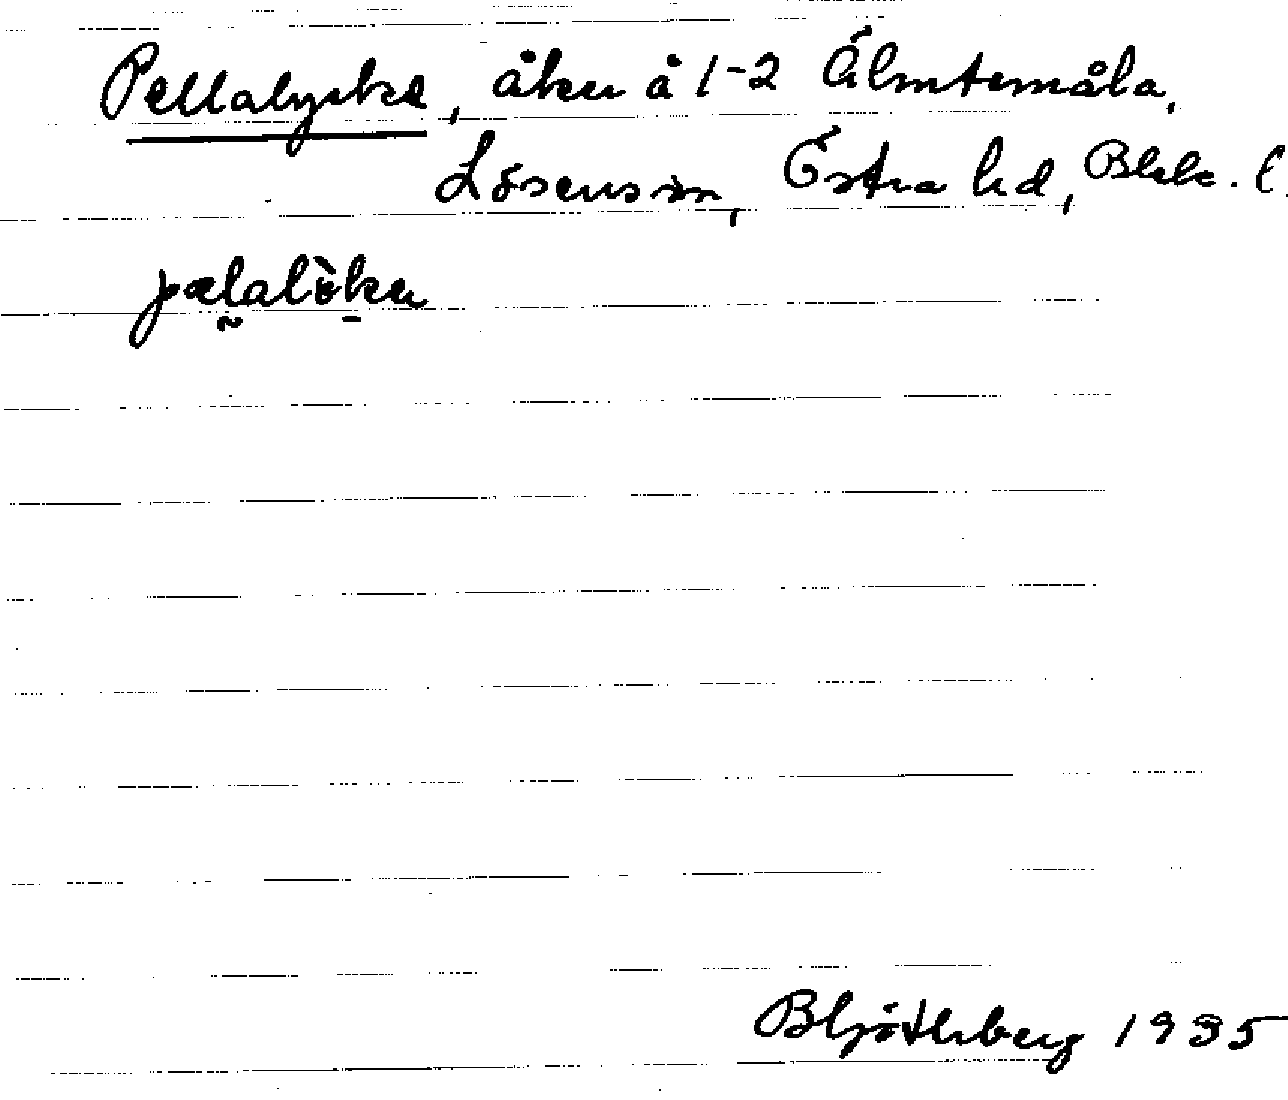 Pellalycke, åker å 1-2 Älmtamåla,
Lösens sn, Östra hd, Blek. l.
pælalỳka
B Ljöthberg 1935